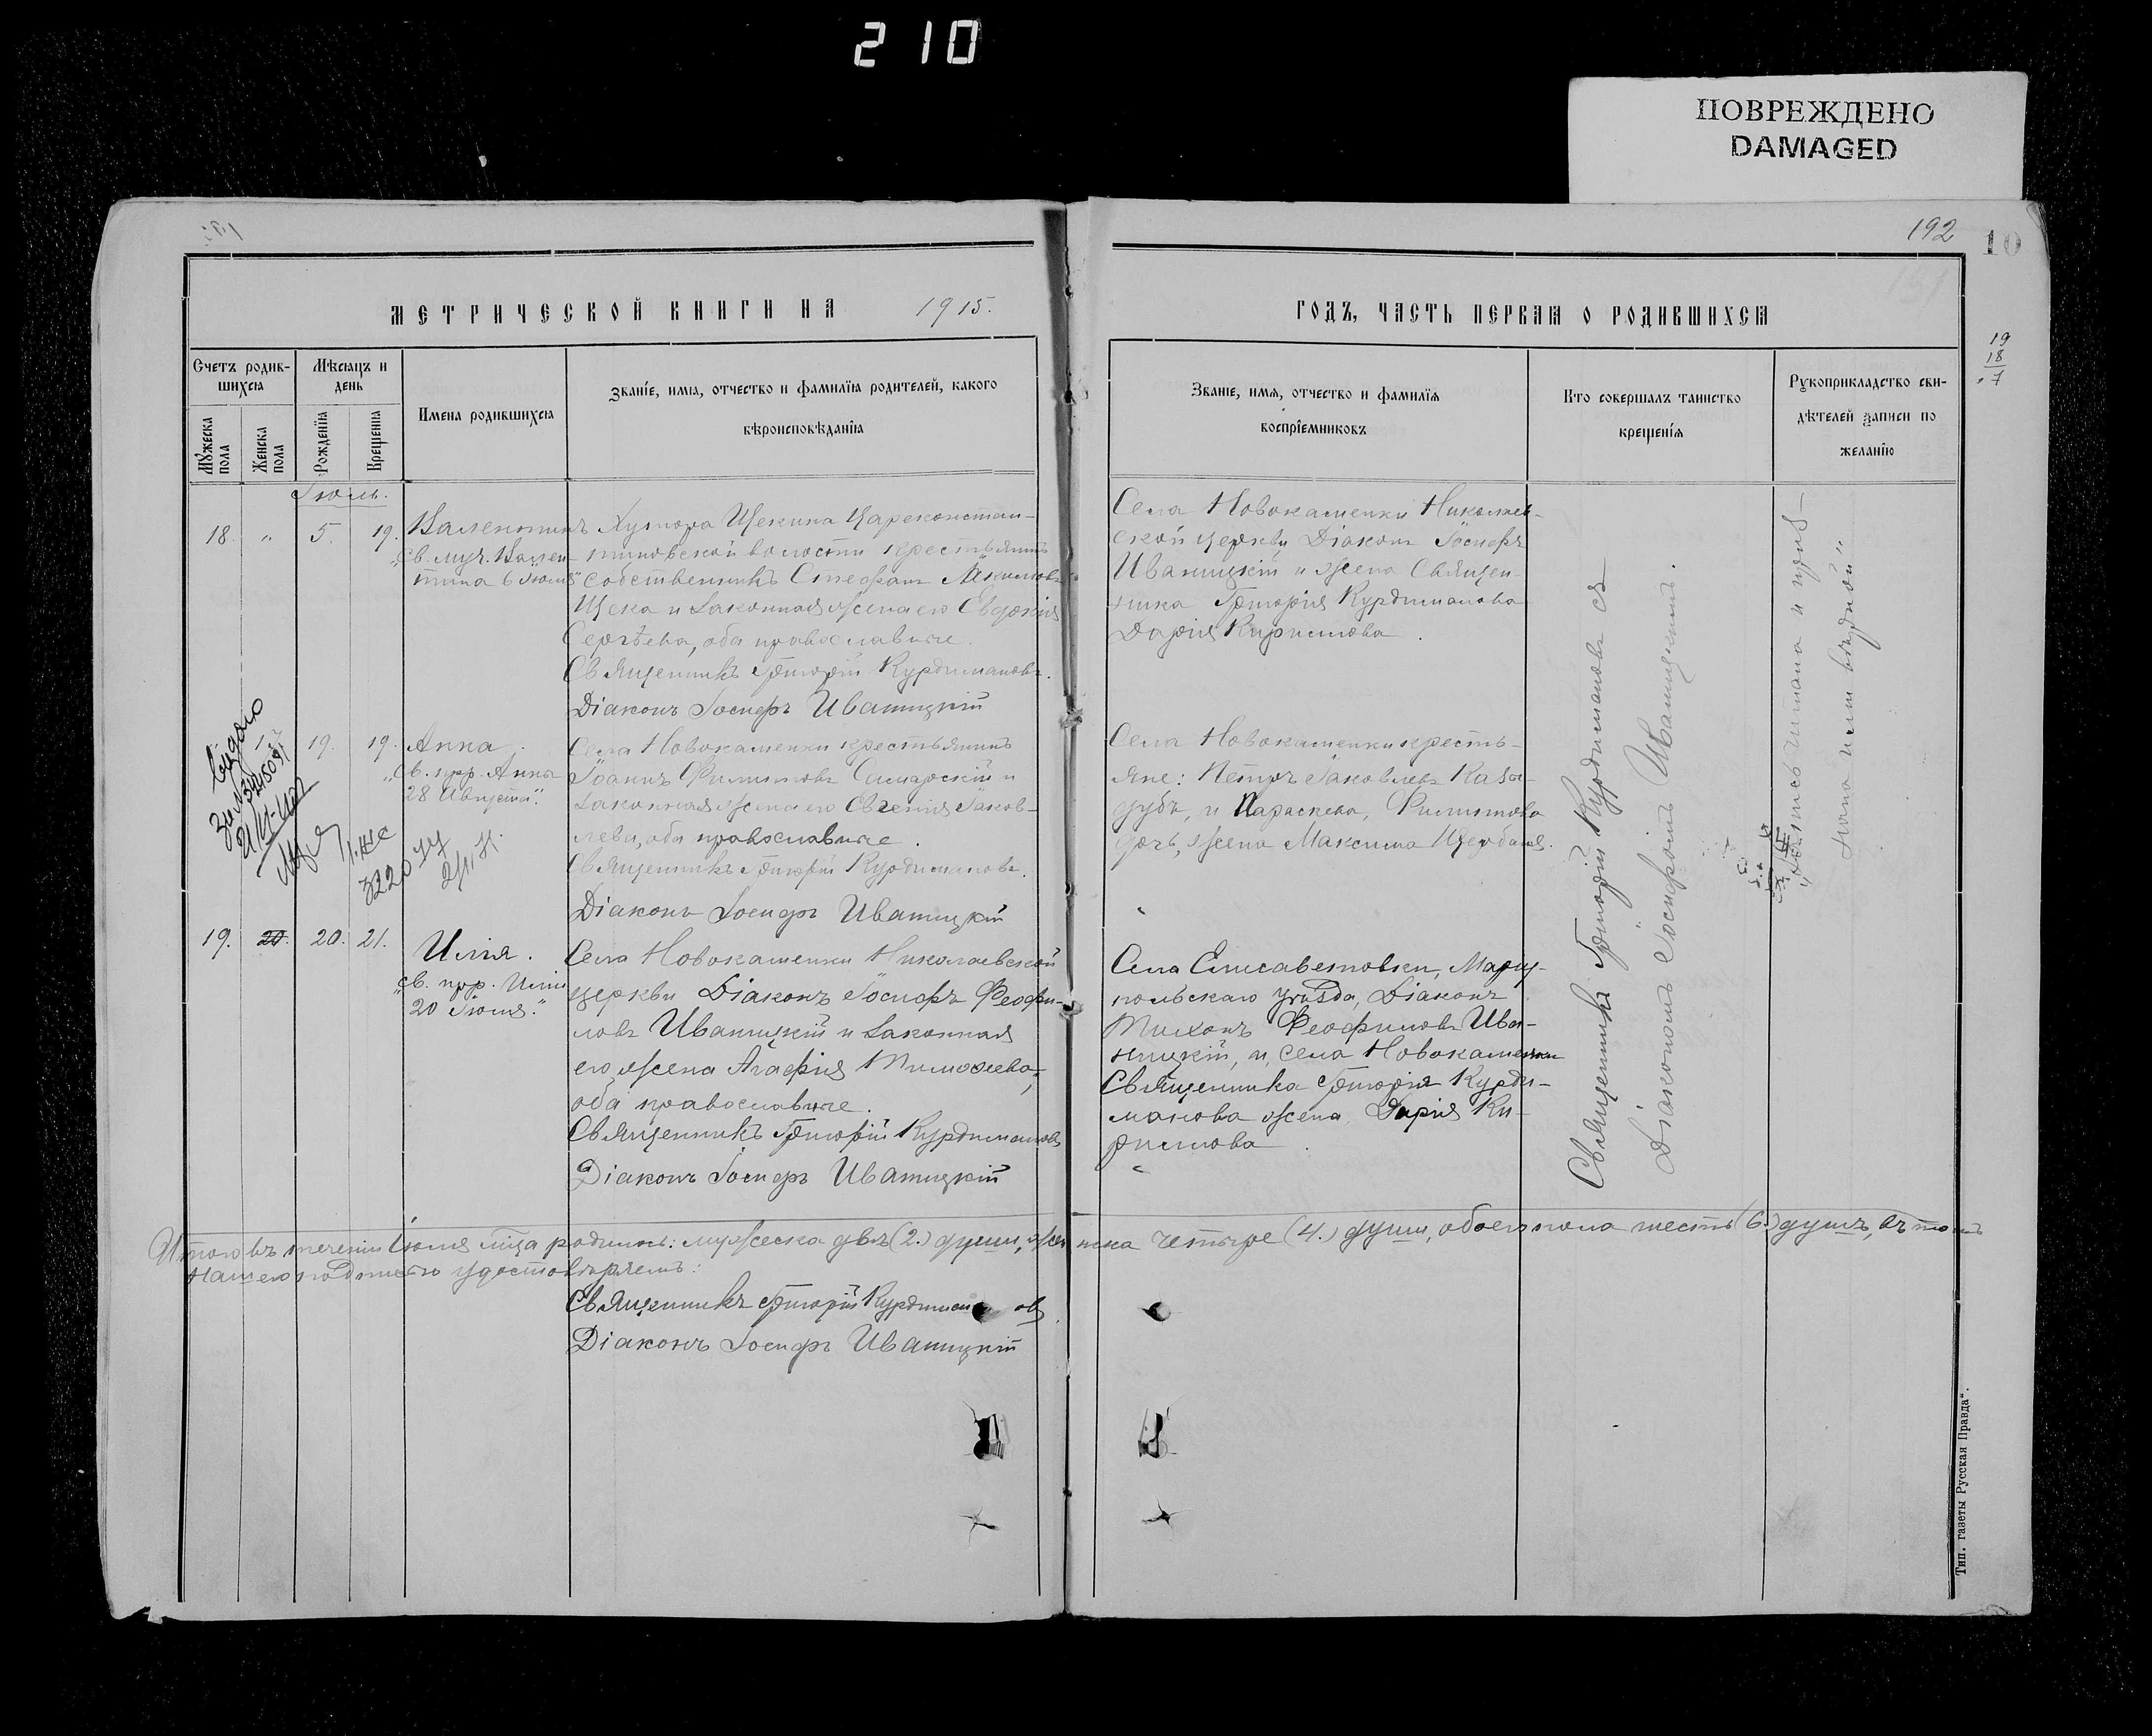 210
ПОВРЕЖДЕНО
DAMAGED
192
10
МЕТРИЧЕСКОЙ КНИГИ НА 1915.
ГОДЪ, ЧАСТЬ ПЕРВАЯ О РОДИВШИХСЯ
19
18
7
Счетъ родив-
шихся
Мѣсяцъ и
день
Мужеска
пола
Женска
пола
Рожденія
Крещенія
Имена родившихся
Званіе, имя, отчество и фамилія родителей, какого
вѣроисповѣданія
Званіе, имя, отчество и фамилія
воспріемниковъ
Кто совершалъ таинство
крещенія
Рукоприкладство сви-
дѣтелей записи по
желанію
Іюль.
18. " 5. 19.
Валентинъ
"Св. муч. Вален-
тина 6 Іюля"
Хутора Щекина Цареконстан-
тиновской волости крестьянинъ
собственникъ Стефанъ
Щека и законная жена его Евдокія
Сергѣева, оба православные.
Священникъ Григорій Курдимановъ.
Діаконъ Іосифъ Иваницкій
Села Новокаменки Николаев-
ской церкви Діаконъ Іосифъ
Иваницкій и жена Священ-
ника Григорія Курдиманова
Дарія Кирилова.
19. 19.
Анна.
"Св. прр. Анны
28 Августа".
Села Новокаменки крестьянинъ
Іоаннъ Филиповъ Самарскій и
законная жена его Евгенія Іаков-
лева, оба православные.
Священникъ Григорій Курдимановъ.
Діаконъ Іосифъ Иваницкій
Села Новокаменки кресть-
яне: Петръ Іаковлевъ Каза-
дубъ, и Параскева, Филипова
дочь, жена Максима Щербаня.
видано
3220
19. 20. 20. 21.
Илія.
"Св. прр. Иліи
20 Іюля."
Села Новокаменки Николаевской
церкви Діаконъ Іосифъ Феофи-
ловъ Иваницкій и законная
его жена Агафія Тимоѳеева,
оба православные.
Священникъ Григорій Курдимановъ
Діаконъ Іосифъ Иваницкій
Села Елисаветовки, Маріу-
польскаго уѣзда, Діаконъ
Тихонъ Феофиловъ Ива-
ницкій, и, села Новокаменки
Священника Григорія Курди-
манова жена Дарія Ки-
рилова.
Священникъ Григорій Курдимановъ съ
Діакономъ Іосифомъ Иваницкимъ.
Итого въ теченіи Іюля мѣсяца родилось: мужеска двѣ (2.) души, женска четыре (4.) души, обоего пола шесть (6.) душъ, въ томъ
нашею подписью удостовѣряемъ:
Священникъ Григорій Курдимановъ.
Діаконъ Іосифъ Иваницкій
Тип. газеты Русская Правда".